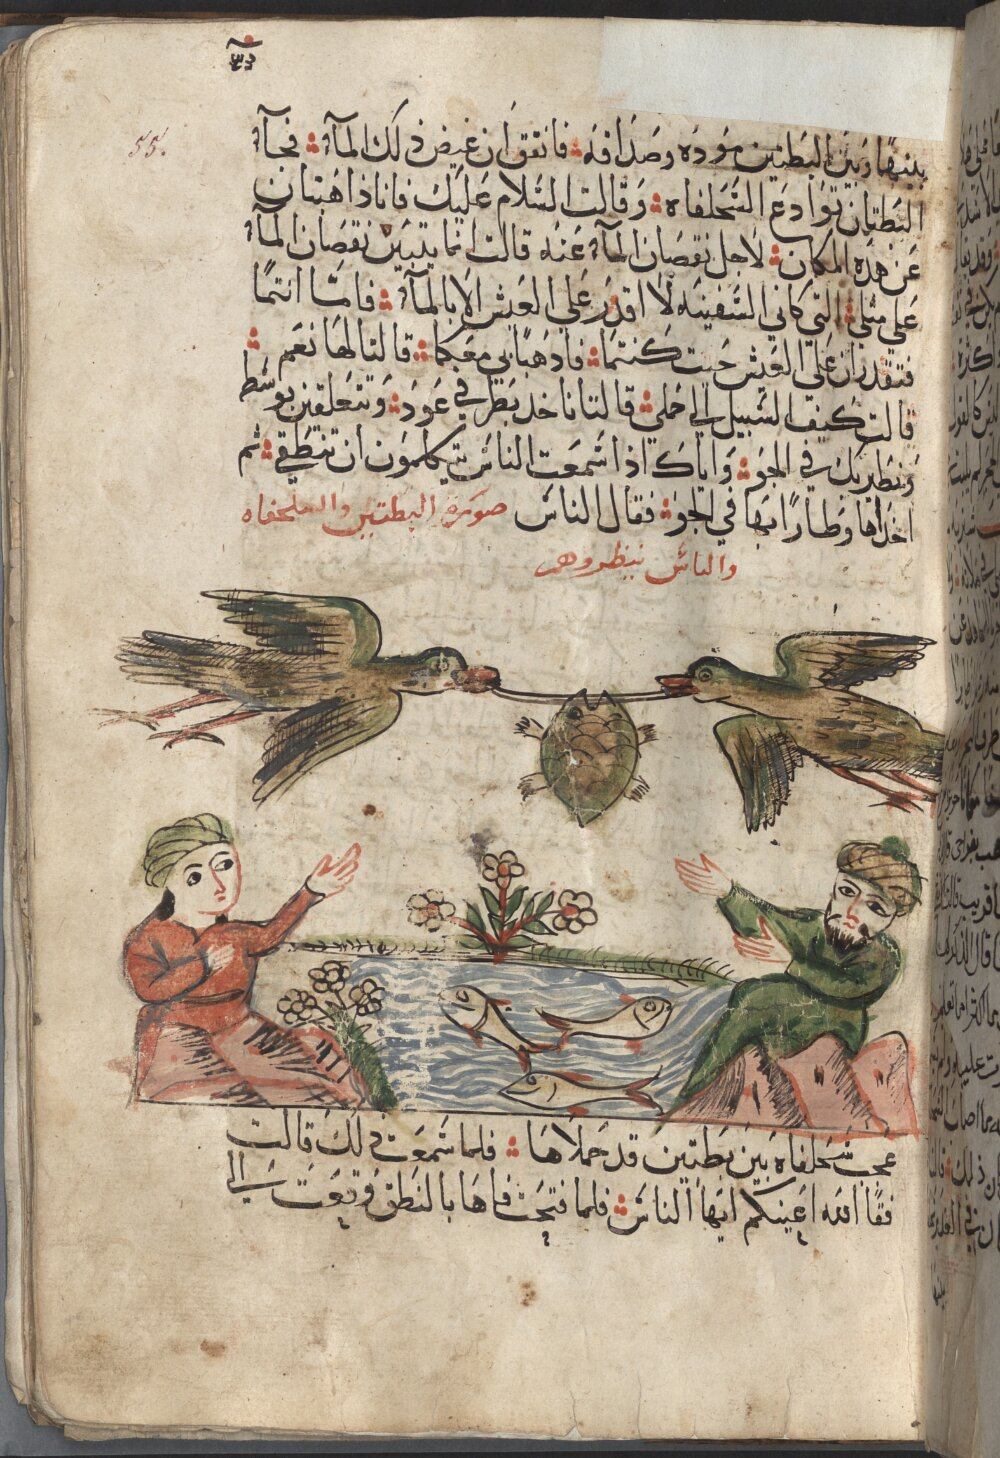 55.
بينهما وبين البطتين مودة وصداقه فاتفق ان غيض ذلك المآء فجآء
البطتان توادع السحلفاه وقالت السلام عليك فاننا ذاهبتان
عن هذه المكان لاجل نقصان المآء عنه قالت انما يتبين نقصان المآء
على مثلي التي كاني السفينه لا اقدر على العيش الا بالمآء فاما انتما
فتقدران على العيش حيث كنتما فاذهبا بي معكما قالتا لها نعم
قالت كيف السبيل الى حملي قالتا ناخذ بطرفي عود وتتعلقين بوسطه
ونطير بك في الجو واياك اذا سمعت الناس يتكلمون ان تنطقي ثم
اخذاها وطارا بها في الجو فقال الناس صورة البطتين والسلحفاه
والناس ينظروهم
عجب سحلفاه بين بطتين قد حملاها فلما سمعت ذلك قالت
فقا الله اعينكم ايها الناس فلما فتحت فاها بالنطق وقعت الى